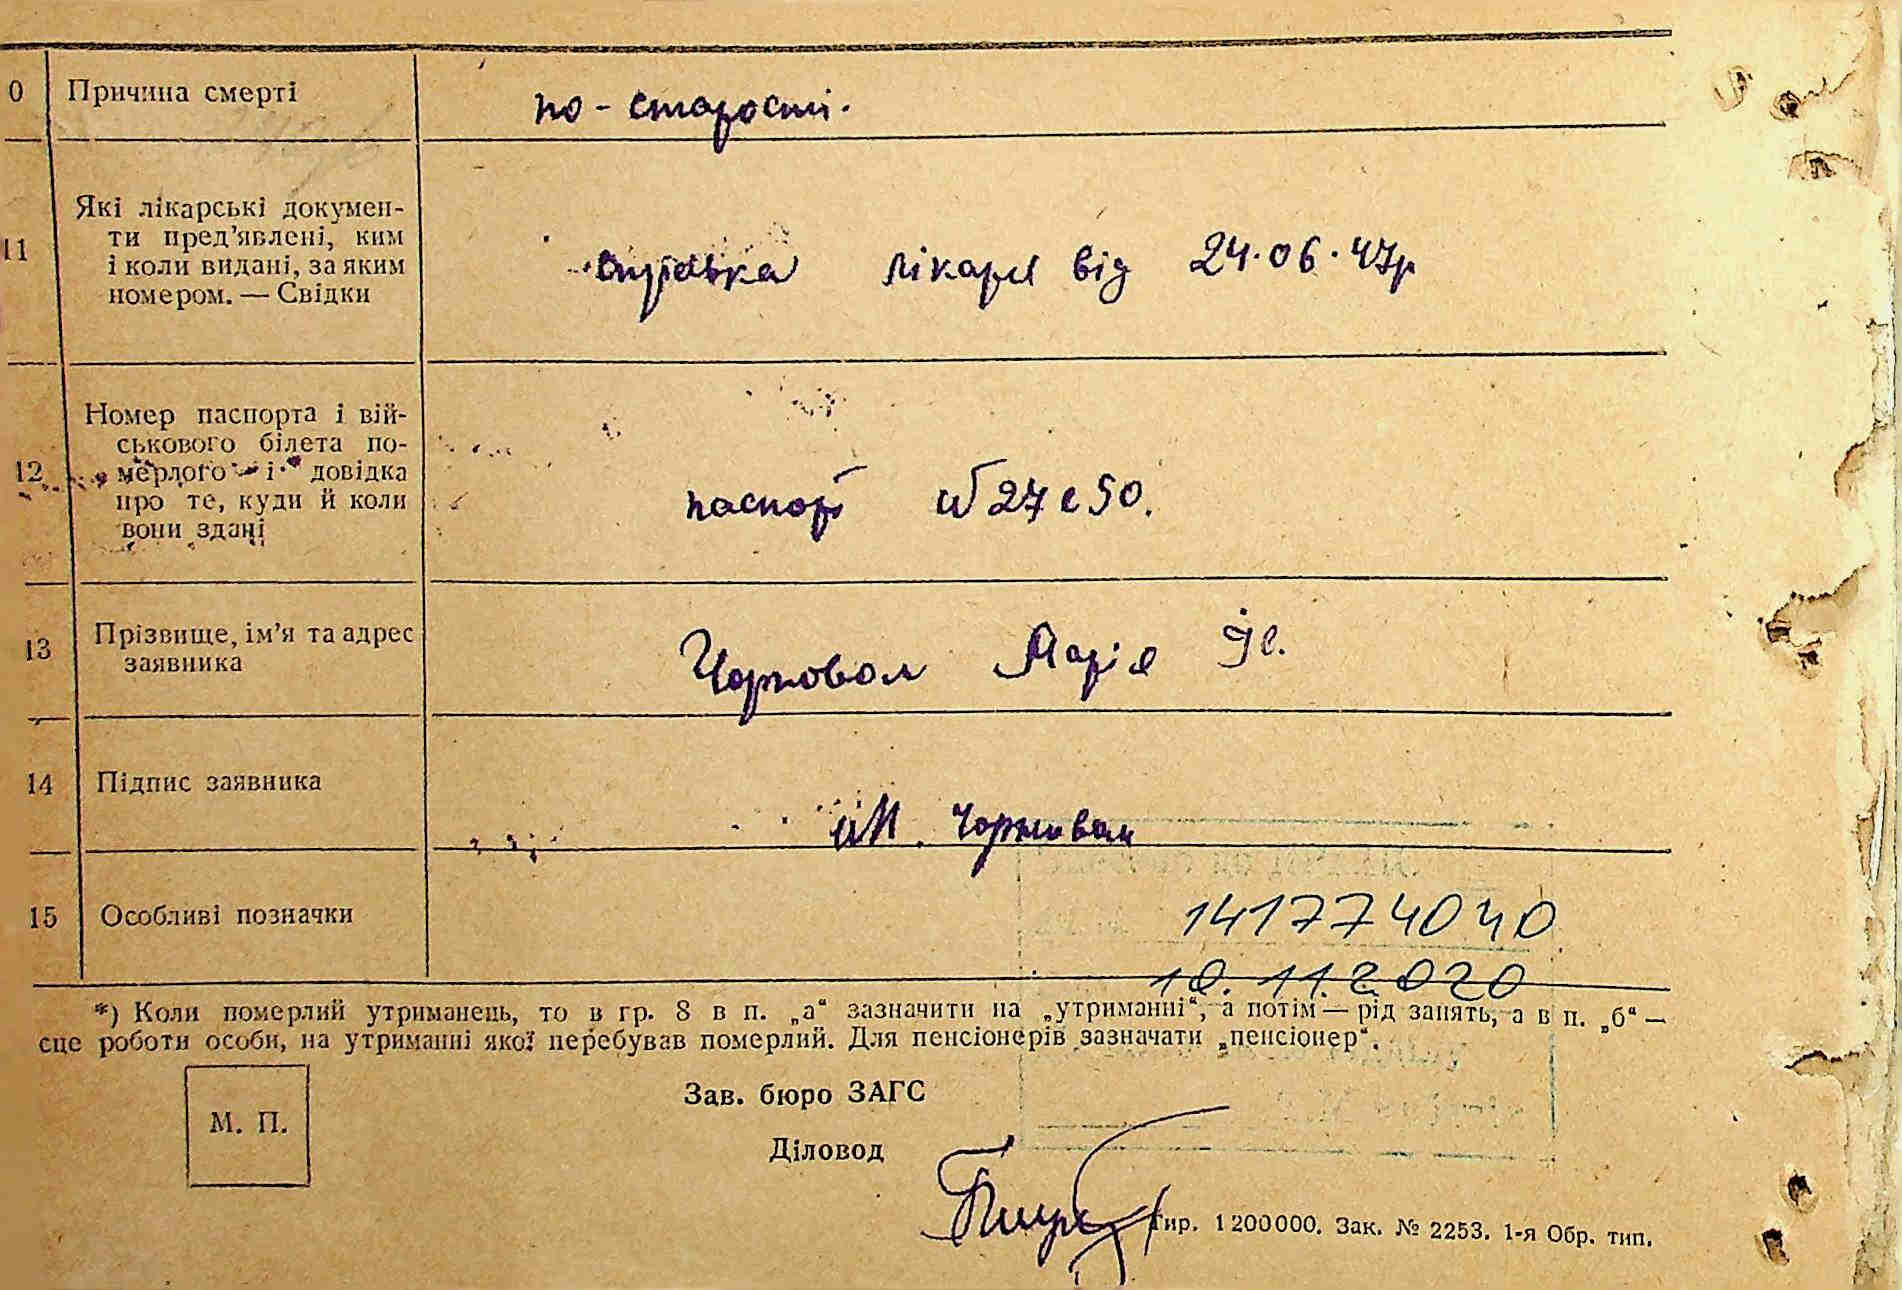 0 Причина смерті
по-старості.
11 Які лікарські докумен-
ти пред'явлені, ким
і коли видані, за яким
номером. — Свідки
лікаря від 24.06.47р
12 Номер паспорта і вій-
ськового білета по-
мерлого і довідка
про те, куди й коли
вони здані
паспорт
13 Прізвище, ім'я та адрес
заявника
Чорновол Марія
14 Підпис заявника
М. Чорновол
15 Особливі позначки
141774040
10.11.2020
*) Коли померлий утриманець, то в гр. 8 в п. „а“ зазначити на „утриманні“, а потім — рід занять, а в п. „б“ —
сце роботи особи, на утриманні якої перебував померлий. Для пенсіонерів зазначати „пенсіонер“.
М. П.
Зав. бюро ЗАГС
Діловод
Тир. 1 200 000. Зак. № 2253. 1-я Обр. тип.